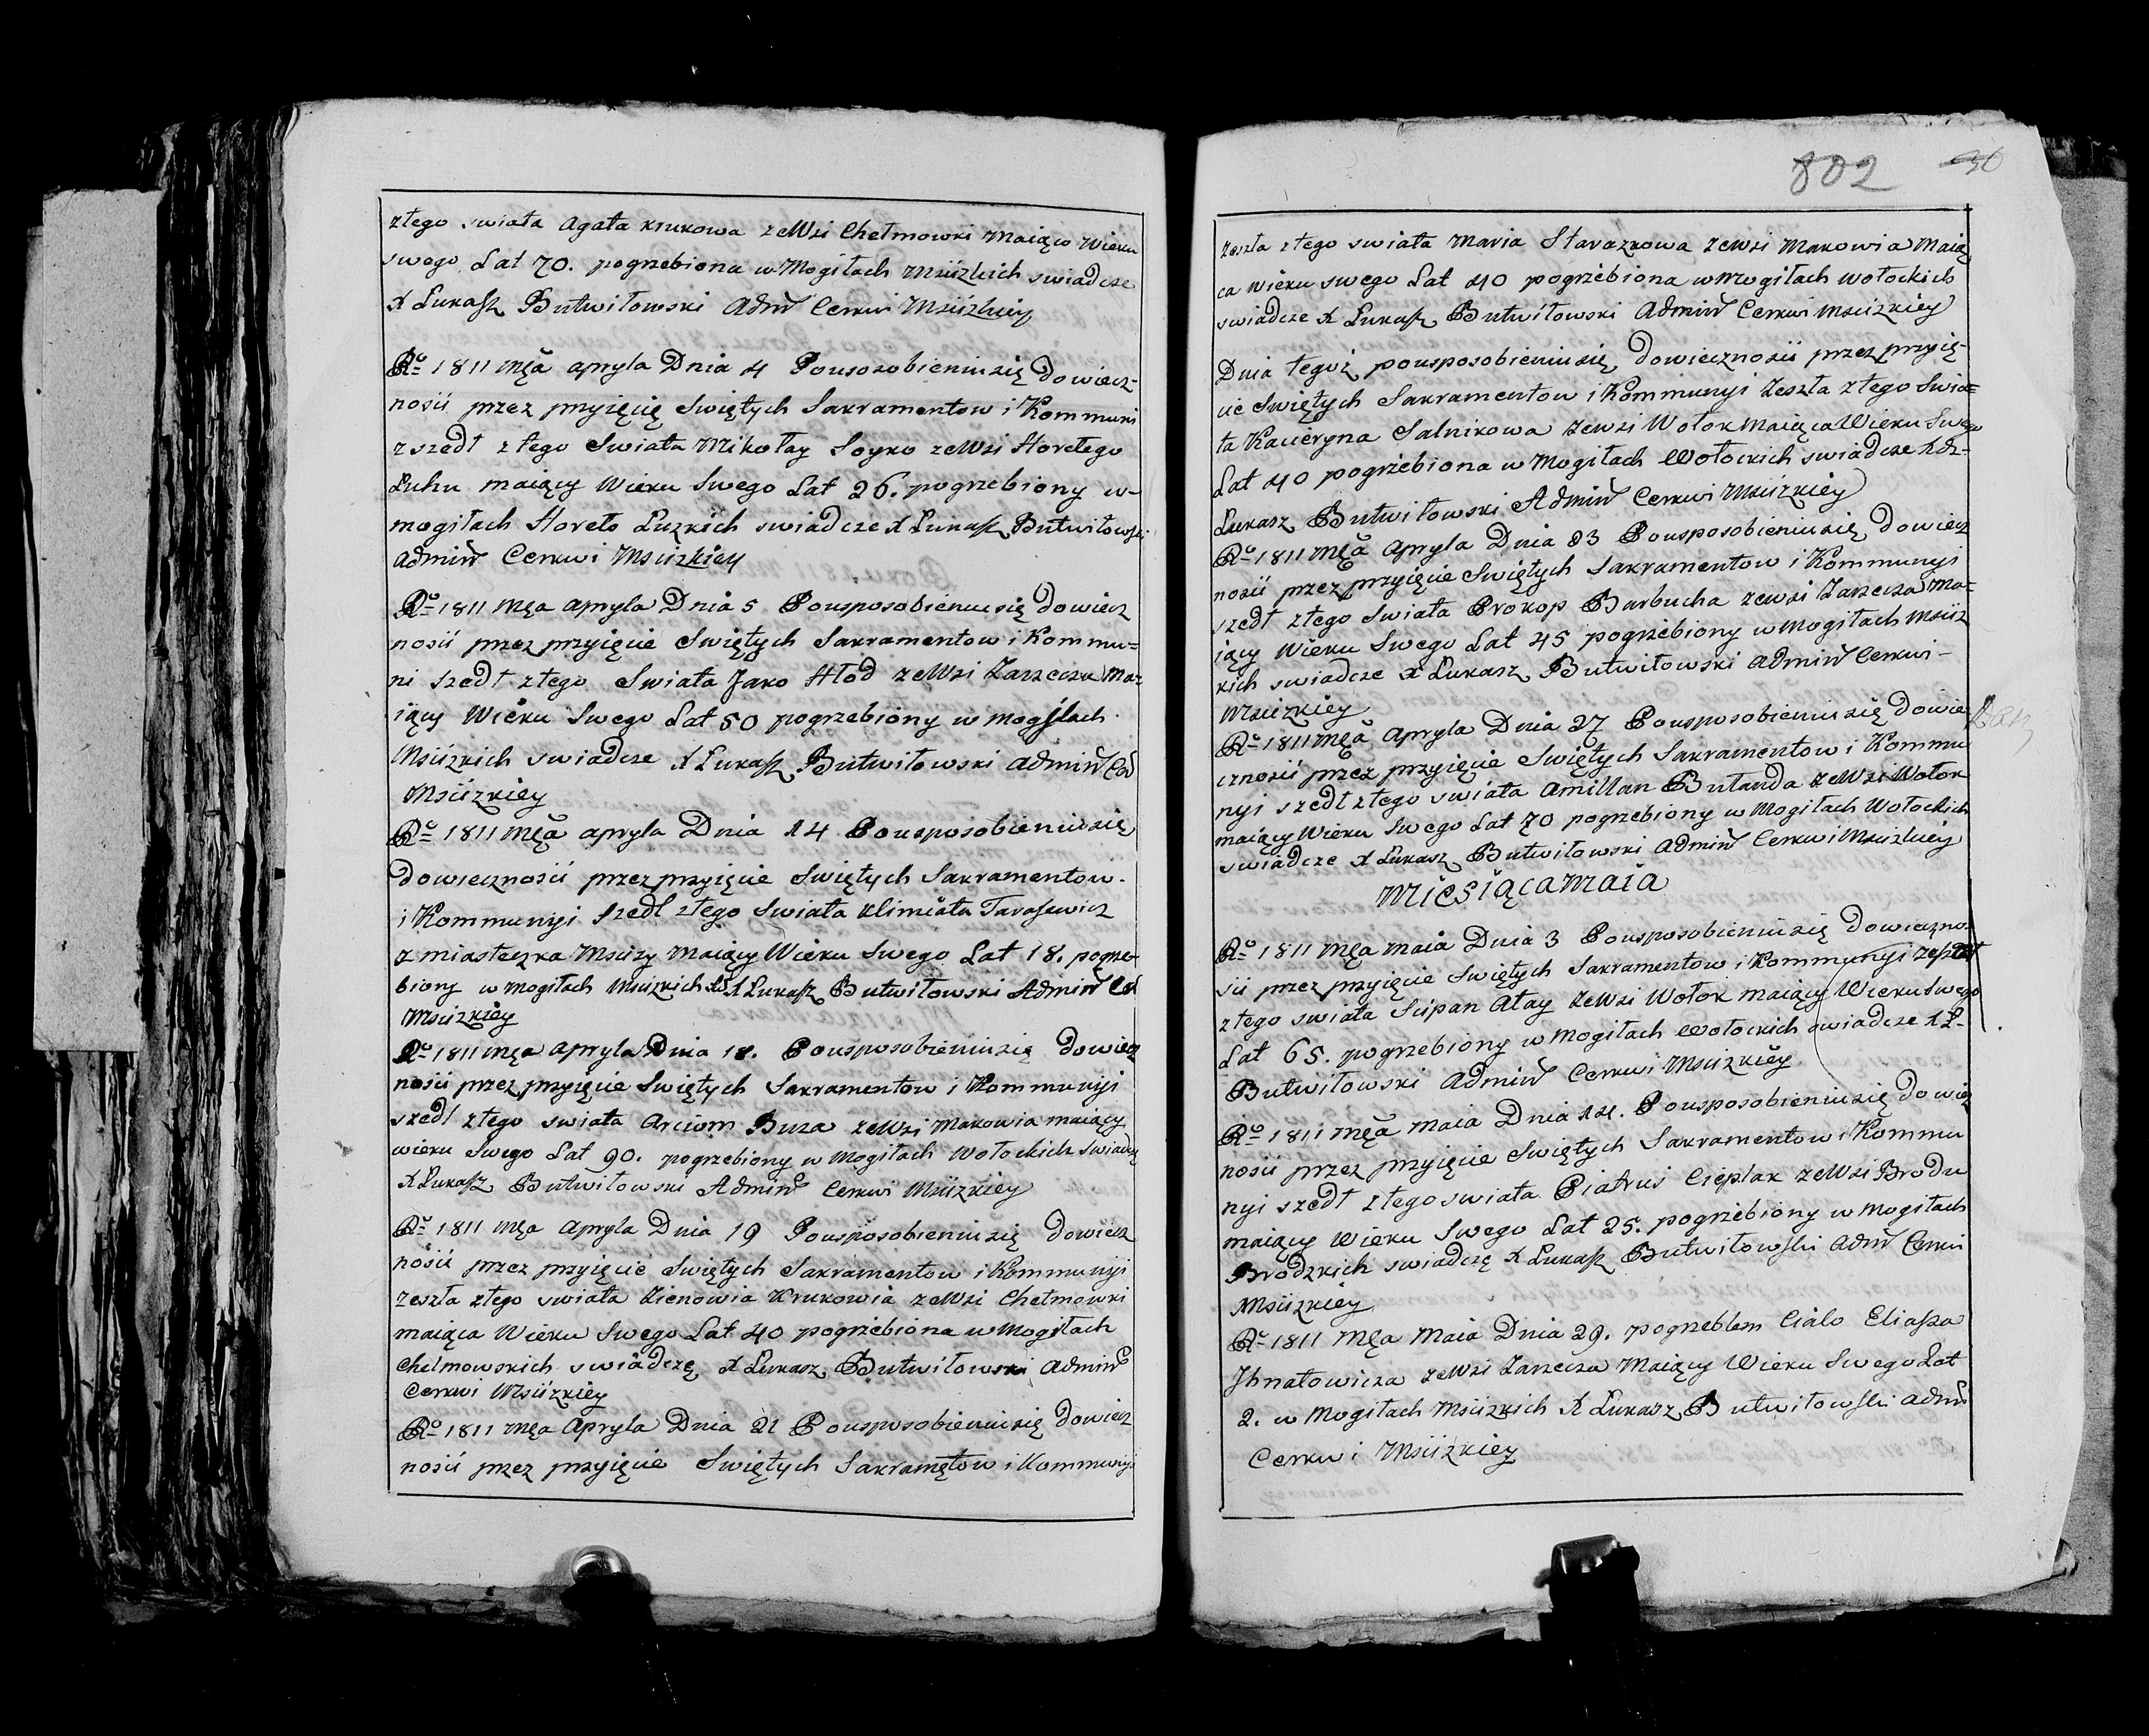 złego swiata Agata Krukowa zeWsi Chełmowki Maiąca Wieku
swego Lat 70. pogrzebiona w Mogiłach Msciżkich swiadcze
X Łukasz Butwiłowski Adm Cerkwi Msciżkiey
Rº 1811 Mca apryla Dnia 4 Pousosobieniusię dowiecz-
nosci przez przyięcię Swiętych Sakramentow i Kommuni
zszedł złego Swiata Mikołay Soyko zeWsi Horełego
Łuhu maiący Wieku Swego Lat 26. pogrzebiony w-
mogiłach Horeło Łuzkich swiadcze X Łukasz Butwiłowski
Admin Cerkwi Msciżkiey
Rº 1811 Mca apryla Dnia 5 Pousposobieniusię dowiecz
nosci przez przyięcie Swiętych Sakramentow i Kommu=
ni szedł złego Swiata Jako Hłod zeWsi Zarzecza Ma=
iący Wieku Swego Lat 50 pogrzebiony w mogiłach
Msciżkich swiadcze X Łukasz Butwiłowski Admin Ce
Msciżkiey
Rº 1811 Mca apryla Dnia 14 Pousposobieniusię
dowiecznosci przez przyięcie Swiętych Sakramentow.
i Kommunyi szedł złego Swiata Klimiata Tarasewicz
z miasteczka Msciży maiący Wieku Swego Lat 18. pogrze-
biony w mogiłach Msciżkich X Łukasz Butwiłowski Admin Ce
Msciżkiey
Rº 1811 Mca apryla Dnia 18. Pousposobieniusię dowiecz
nosci przez przyięcie Swiętych Sakramentow i Kommunyi
szedł złego swiata Arciom Buza zeWsi Makowia maiący
wieku Swego Lat 90. pogrzebiony w Mogiłach Wołockich swiadczę
X Łukasz Butwiłowski Admin Cerkwi Msciżkiey
Rº 1811 Mca Apryla Dnia 19 Pousposobieniusię dowiecz
nosci przez przyięcie Swiętych Sakramentow i Kommunyi
zeszła złego swiata Zienowia Krukowia zeWsi Chełmowki
maiąca Wieku Swego Lat 40 pogrzebiona w Mogiłach
Chełmowskich swiadczę X Łukasz Butwiłowski Admin
Cerkwi Msciżkiey
Rº 1811 Mca Apryla Dnia 21 Pousposobieniusię dowiecz
nosci przez przyięcie Swiętych Sakramętow i Kommunyi
802 30
Zeszła złego swiata Maria Starazkowa zeWsi Makowia Maią
ca wieku swego Lat 40 pogrzebiona w Mogiłach Wołockich
swiadcze X Łukasz Butwiłowski Admin Cerkwi Msciżkiey
Dnia tegoż pousposobieniusię dowiecznosci przez przyię-
cie Swiętych Sakramentow i Kommunyi Zeszła złego Swia=
ta Kacieryna Salnikowa zeWsi Wołok maiąca Wieku Swego
Lat 40 pogrzebiona w Mogiłach Wołockich swiadcze
Łukasz Butwiłowski Admin Cerkwi Msciżkiey
Rº 1811 Mca Apryla Dnia 23 Pousposobieniusię dowiecz
nosci przez przyięcie Swiętych Sakramentow i Kommunyi
szedł złego Swiata Prokop Barbucha zeWsi Zarzecza Ma=
iący Wieku Swego Lat 45 pogrzebiony w Mogiłach Msciż
kich swiadcze X Łukasz Butwiłowski Admin Cerkwi-
Msciżkiey
Rº 1811 Mca Apryla Dnia 27 Pousposobieniusię dowie
cznosci przez przyięcie Swiętych Sakramentow i Kommu
nyi szedł złego swiata Amillan Butanda zeWsi Wołok
maiący Wieku Swego Lat 70 pogrzebiony w Mogiłach Wołockich
swiadcze X Łukasz Butwiłowski Admin Cerkwi Msciżkiey
Miesiąca Maia
Rº 1811 Mca Maia Dnia 3 Pousposobieniusię dowieczno=
sci przez przyięcie Swiętych Sakramentow i Kommunyi zeszedł
złego swiata Scipan Ałay zeWsi Wołok maiący Wieku Swego
Lat 65. pogrzebiony w Mogiłach Wołockich swiadcze X Ł-
Butwiłowski Admin Cerkwi Msciżkiey
Rº 1811 Mca Maia Dnia 14. Pousposobieniusię dowiecz
nosci przez przyięcie Swiętych Sakramentow i Kommu
nyi szedł złego swiata Piatruś Cieplak zeWsi Brodu
maiący Wieku Swego Lat 25. pogrzebiony w Mogiłach
Brodzkich swiadczę X Łukasz Butwiłowski Adm Cerkwi
Msciżkiey
Rº 1811 Mca Maia Dnia 29. pogrzebłem Ciało Eliasza
Ihnatowicza zeWsi Zarzecza Maiący Wieku Swego Lat
2. w Mogiłach Msciżkich X Łukasz Butwiłowski Adm
Cerkwi Msciżkiey